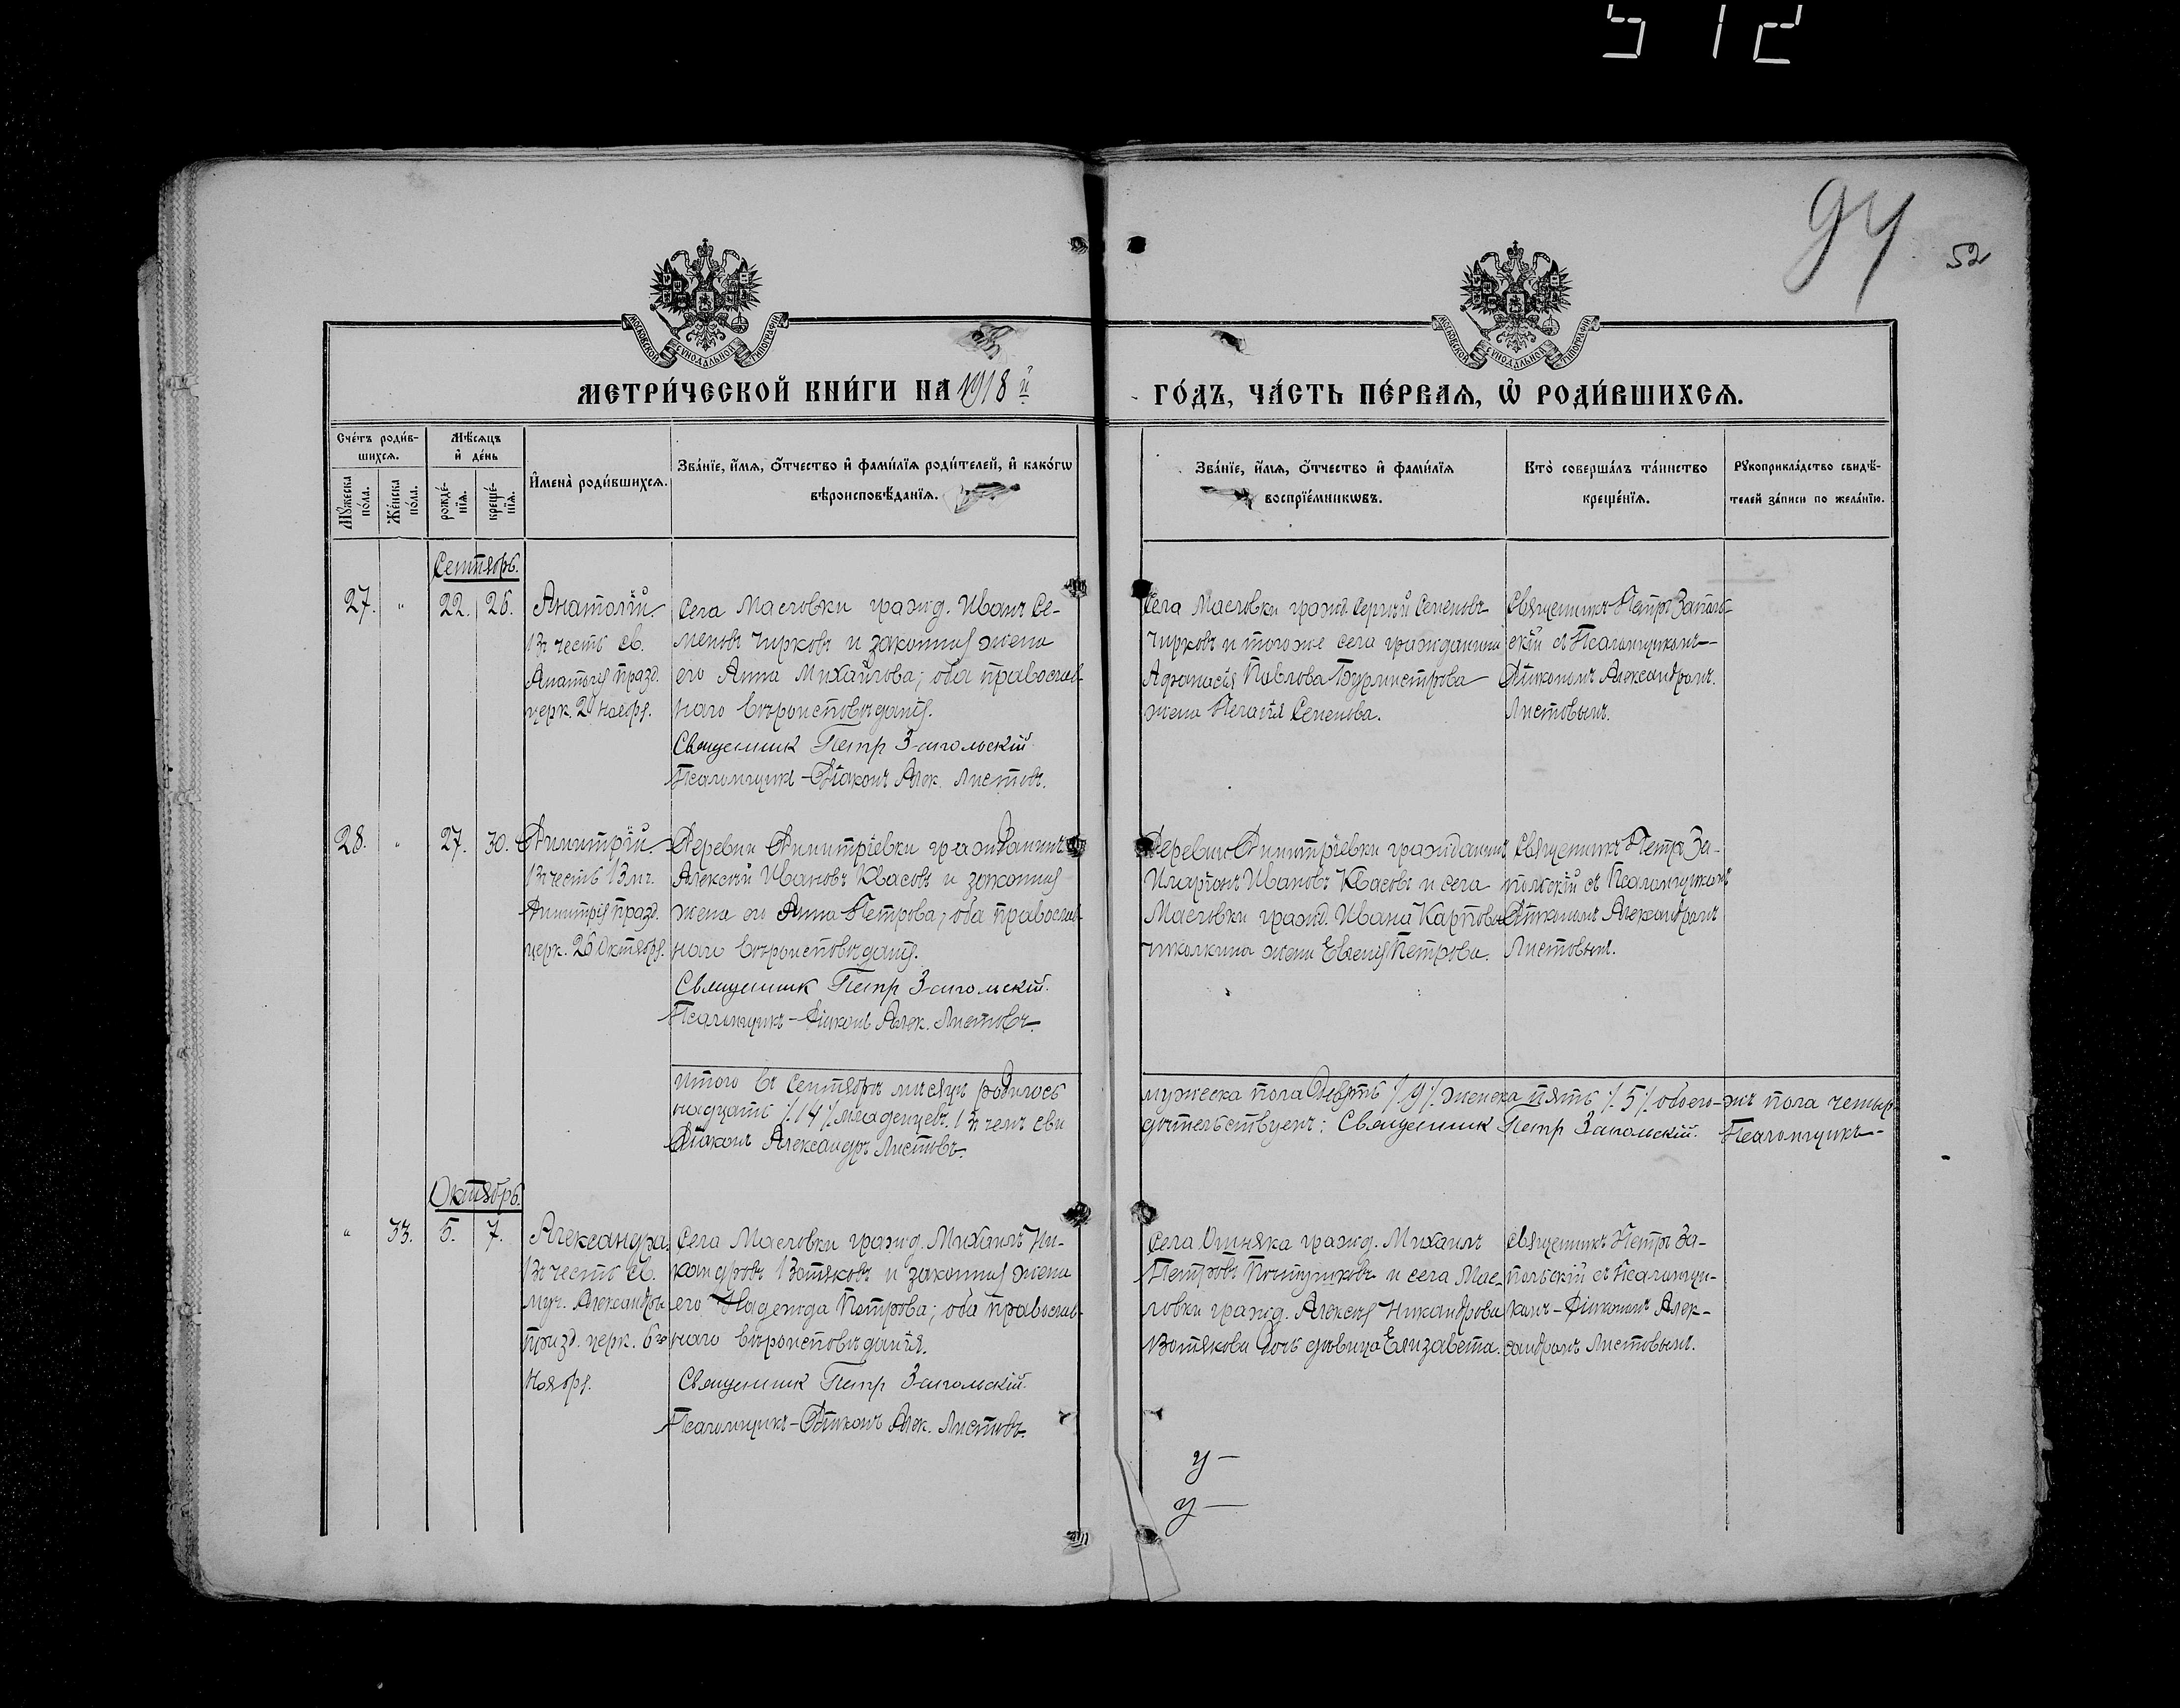 512
94
52
МОСКОВСКОЙ СѴНОДАЛЬНОЙ ТИПОГРАФІИ
МОСКОВСКОЙ СѴНОДАЛЬНОЙ ТИПОГРАФІИ
МЕТРИ́ЧЕСКОЙ КНИ́ГИ НА 1918 й
ГО́ДЪ, ЧА́СТЬ ПЕ́РВАѦ, Ѡ҆ РОДИ́ВШИХСѦ.
Сче́тъ роди́в-
шихсѧ.
Мꙋ́жеска по́ла.
Же́нска по́ла.
Мѣ́сѧцъ
и҆ де́нь
рожде́-
нїѧ.
креще́-
нїѧ.
И҆мена̀ роди́вшихсѧ.
Зва́нїе, и҆́мѧ, ѻ҆́тчество и҆ фами́лїѧ роди́телей, и҆ како́гѡ
вѣроисповѣ́данїѧ.
Зва́нїе, и҆́мѧ, ѻ҆́тчество и҆ фами́лїѧ
воспрїе́мникѡвъ.
Кто̀ соверша́лъ та́инство
креще́нїѧ.
Рꙋкоприкла́дство свидѣ́-
телей за́писи по жела́нїю.
Сентябрь.
27. " 22. 26. Анатолій
Въ честь св.
Анатолія празд.
церк. 20 ноября.
Села Масловки гражд. Иванъ Се-
меновъ Чирковъ и законная жена
его Анна Михайлова; оба православ-
наго вѣроисповѣданія.
Священник Петр Запольскій
Псаломщикъ-Діаконъ Алек. Листовъ.
Села Масловки гражд. Сергій Семеновъ
Чирковъ и тогоже села гражданина
Афанасія Павлова Бурмистрова
жена Пелагія Семенова.
Священникъ Петръ Заполь-
скій съ Псаломщикомъ-
Діакономъ Александромъ
Листовымъ.
28. " 27. 30. Димитрій.
Въ честь Влмч.
Димитрія празд.
церк. 26 Октября.
Деревни Димитріевки гражданинъ
Алексѣй Ивановъ Квасовъ и законная
жена его Анна Петрова; оба православ-
наго вѣроисповѣданія.
Священник Петр Запольскій.
Псаломщикъ-Діаконъ Алек. Листовъ.
Деревни Димитріевки гражданинъ
Иларіонъ Ивановъ Квасовъ и села
Масловки гражд. Ивана Карпова
жена Евгенія Петрова.
Священникъ Петръ За-
польскій съ Псаломщикомъ
Діакономъ Александромъ
Листовымъ.
Итого въ Сентябрѣ мѣсяцѣ родилось мужеска пола девять /9/ женска пять /5/ обоего-жъ пола четыр-
надцать /14/ младенцевъ. Въ чемъ сви дѣтельствуемъ: Священник Петр Запольскій. Псаломщикъ-
Діаконъ Александръ Листовъ.
Октябрь.
" 33. 5. 7. Александра.
Въ честь св.
муч. Александры
празд. церк. 6го
Ноября.
Села Масловки гражд. Михаилъ Ни-
кандровъ Вотяковъ и законная жена
его Надежда Петрова; оба православ-
наго вѣроисповѣданія.
Священник Петр Запольскій.
Псаломщикъ-Діаконъ Алек. Листовъ.
Села Ошняка гражд. Михаилъ
Петровъ и села Мас-
ловки гражд. Алексѣя Никандрова
Вотякова дочь дѣвица Елизавета.
Священникъ Петръ За-
польскій съ Псаломщи-
комъ-Діакономъ Алек-
сандромъ Листовымъ.
у-
у-